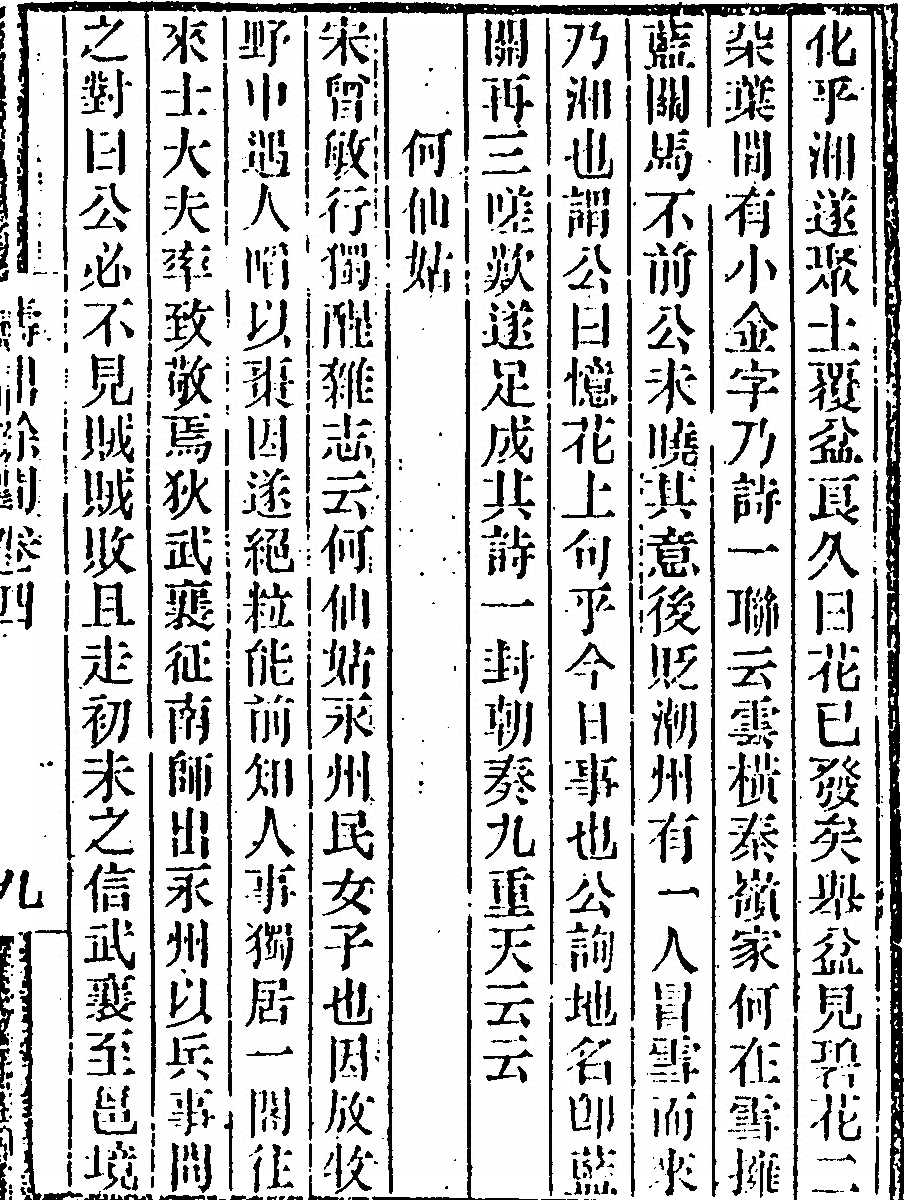 化乎湘遂聚土覆盆良久曰花已發矣舉盆見碧花二
朶葉間有小金字乃詩一聯云雲橫秦嶺家何在雪擁
藍關馬不前公未曉其意後貶潮州有一人冒雪而來
乃湘也謂公曰憶花上句乎今日事也公詢地名卽藍
關再三嗟歎遂足成其詩一封朝奏九重天云云
何仙姑
宋曾敏行獨醒雜志云何仙姑永州民女子也因放牧
野中遇人啗以棗因遂絕粒能前知人事獨居一閣往
來士大夫率致敬焉狄武襄征南師出永州以兵事問
之對曰公必不見賊賊敗且走初未之信武襄至邕境
卷四
九